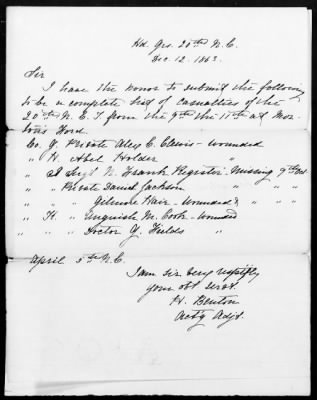 Hd. Qrs. 20th N.C.
Dec. 12. 1863.
Sir
I have the honor to submit the following
to be a complete list of casualties of the
20th N.C.T from the 9th the 11th at Mor-
tons Ford.
Co. G Private Alex C. Clewis - wounded
" H. Abel Holder "
" I Sergt N. Frank Register - Missing 9th
" " Private Daniel Jackson " "
" " " Gilmore Hair - wounded
" K " Anguish M. Cook - wounded
" " " Doctor Y. Fields "
April 5th N.C.
I am sir very respfly
your obt servt.
H. Benton
Actg Adjt.